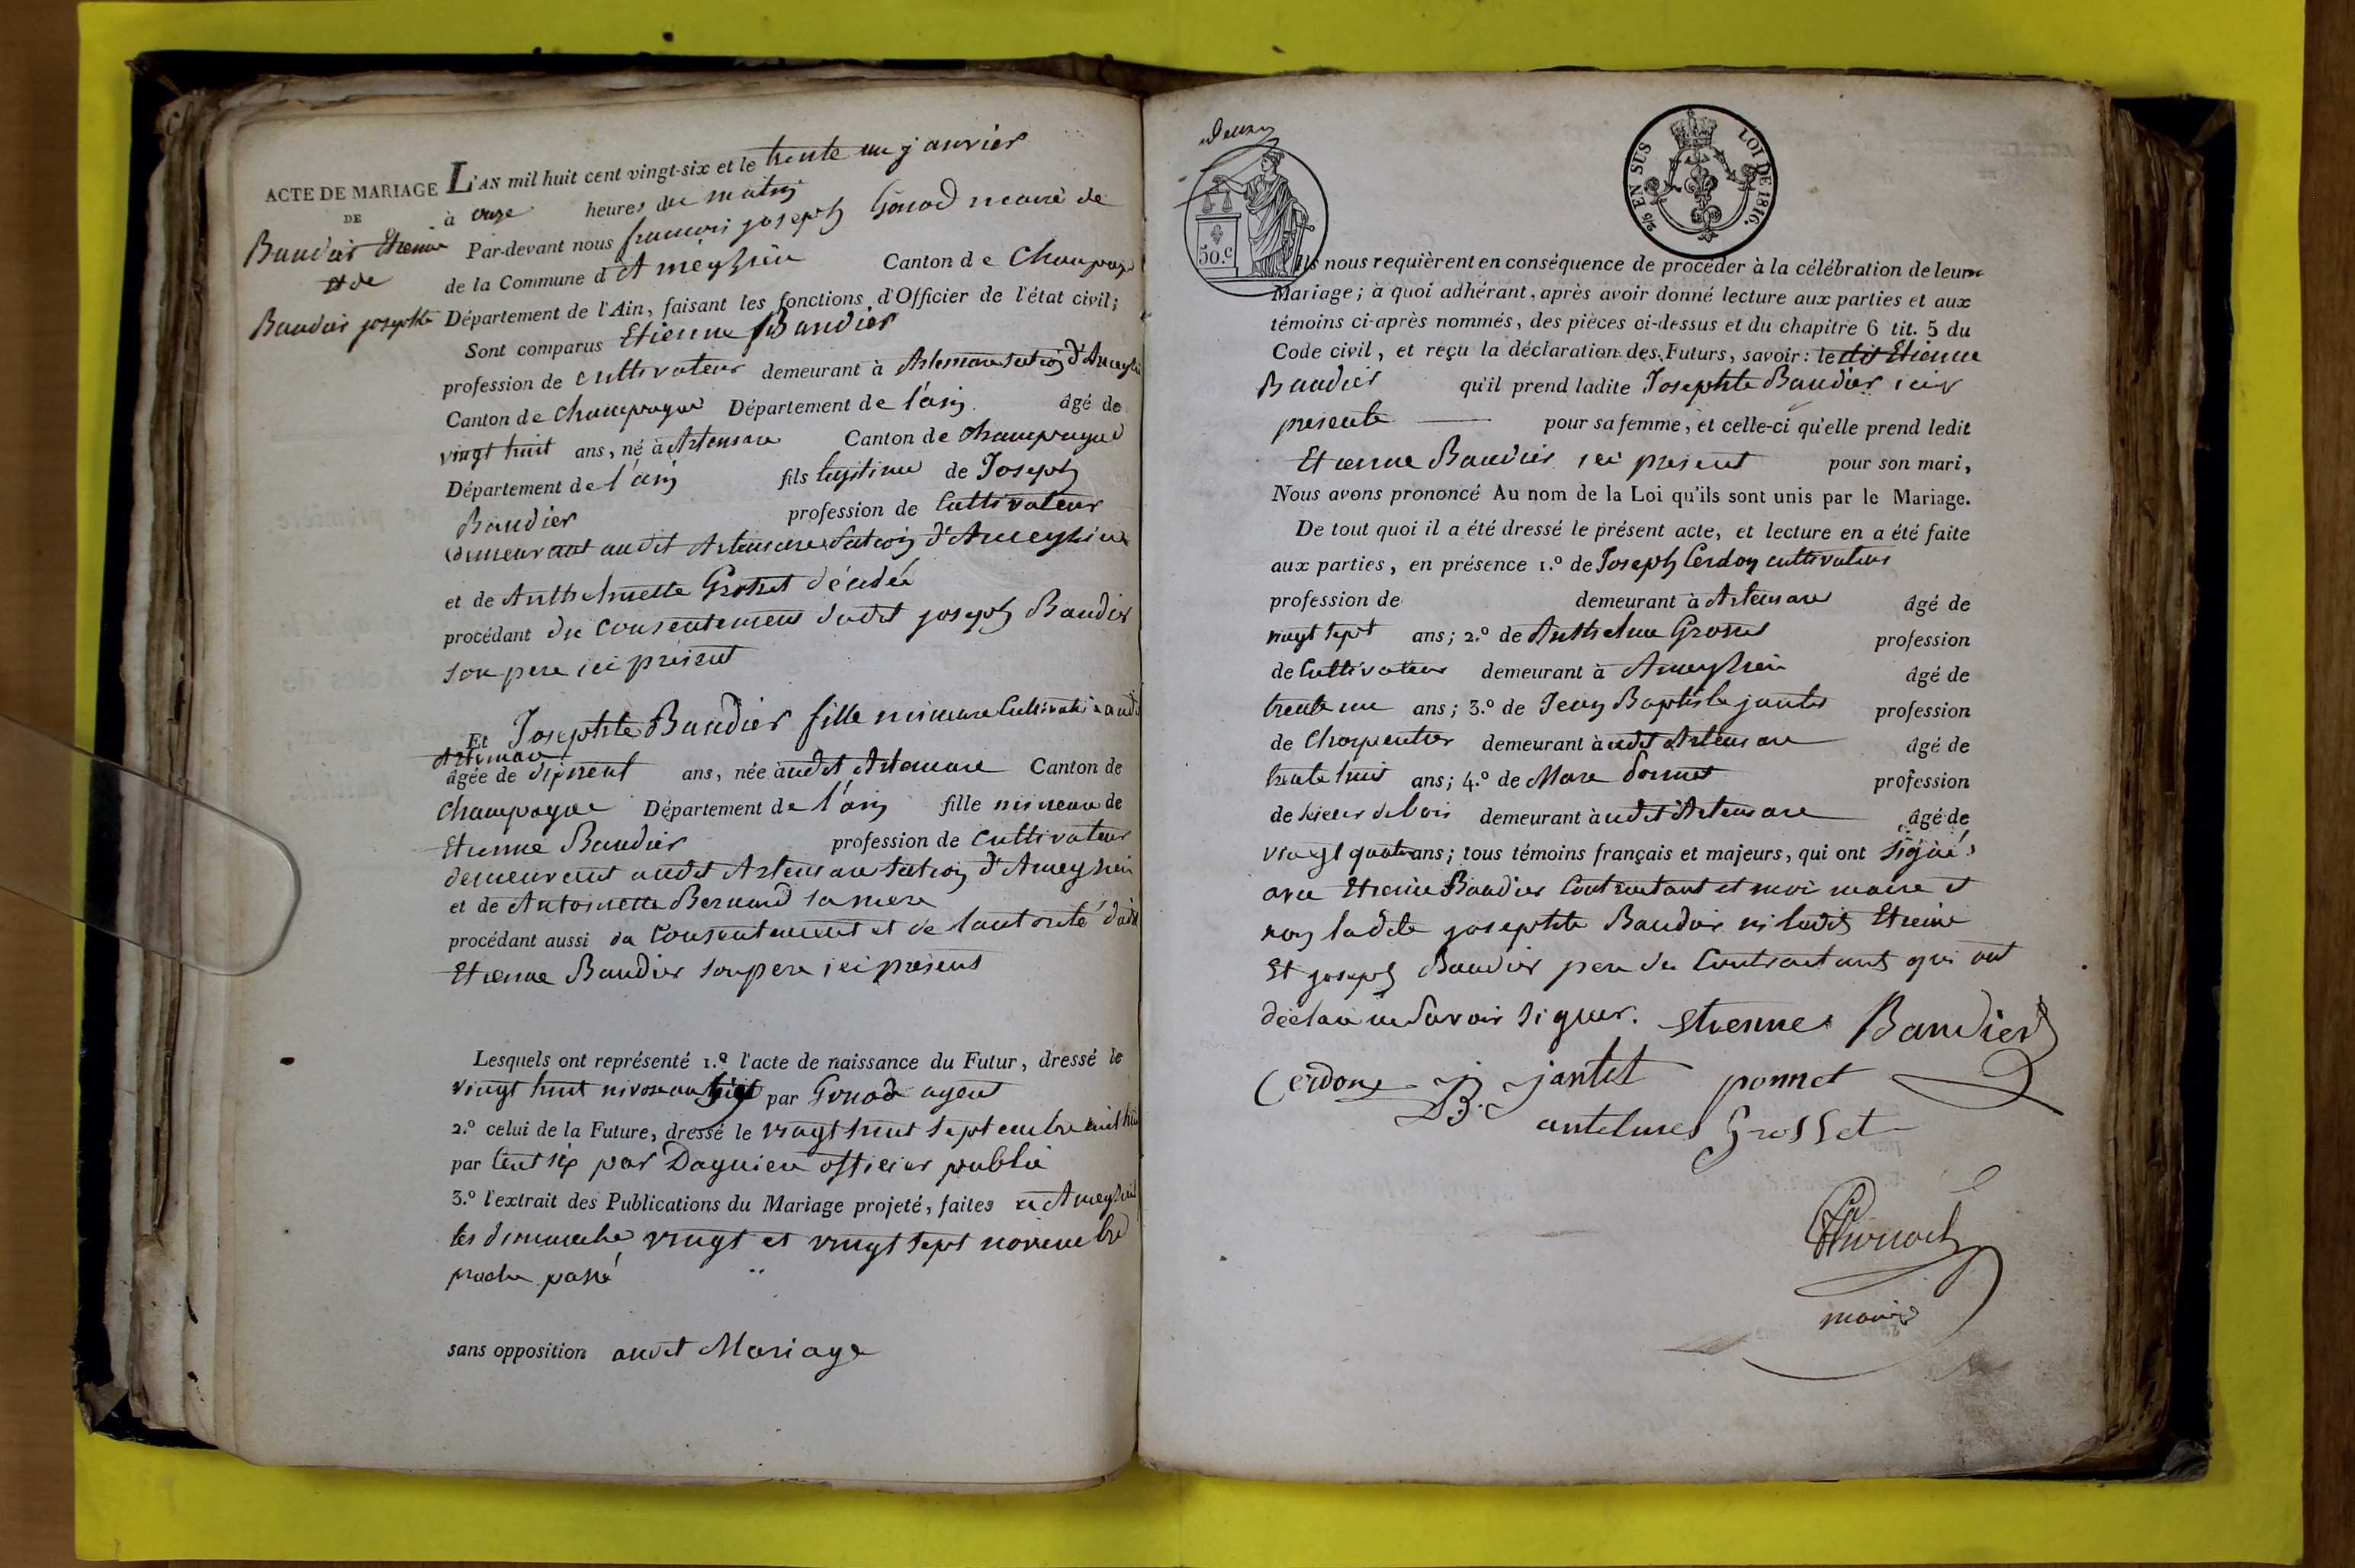 ACTE DE MARIAGE
DE
Baudier Etienne
et de
Baudier josephte
L'AN mil huit cent vingt-six et le trente un janvier
à onze heures du matin
Par-devant nous francois joseph Gonod maire de
de la Commune d'Ameyzieu Canton de Champagne
Département de l'Ain, faisant les fonctions d'Officier de l'état civil;
Sont comparus Etienne Baudier
profession de cultivateur demeurant à Artemare section d'Ameyzieu
Canton de Champagne Département de l'ain âgé de
vingt huit ans, né à Artemare Canton de Champagne
Département de l'ain fils legitime de Joseph
Baudier profession de Cultivateur
demeurant audit Artemare section d'Ameyzieu
et de Anthelmette Grosset décédée
procédant du consentement dudit joseph Baudier
son pere ici présent
Et Josephte Baudier fille mineure Cultivatrice audit
Artemare
âgée de dixneuf ans, née audit Artemare Canton de
Champagne Département de l'ain fille mineure de
Etienne Baudier profession de cultivateur
demeurant audit Artemare section d'Ameyzieu
et de Antoinette Bernard sa mere
procédant aussi du Consentement et de l'autorité dudit
Etienne Baudier son pere ici présent
Lesquels ont représenté 1.º l'acte de naissance du Futur, dressé le
vingt huit nivose an six par Gonod agent
2.º celui de la Future, dressé le vingt huit septembre mil huit
par Cent six par Daguien officier public
3.º l'extrait des Publications du Mariage projeté, faites à Ameyzieu
les dimanche vingt et vingt sept novembre
proche passé
sans opposition audit Mariage
LOI DE 1816.
2/6 EN SUS
50.c
Ils nous requièrent en conséquence de procéder à la célébration de leur
Mariage; à quoi adhérant, après avoir donné lecture aux parties et aux
témoins ci-après nommés, des pièces ci-dessus et du chapitre 6 tit. 5 du
Code civil, et reçu la déclaration des Futurs, savoir: le dit Etienne
Baudier qu'il prend ladite Josephte Baudier ici
presente pour sa femme, et celle-ci qu'elle prend ledit
Etienne Baudier ici present pour son mari,
Nous avons prononcé Au nom de la Loi qu'ils sont unis par le Mariage.
De tout quoi il a été dressé le présent acte, et lecture en a été faite
aux parties, en présence 1.º de Joseph Cerdon cultivateur
profession de demeurant à Artemare âgé de
vingt sept ans; 2.º de Anthelme Grosset profession
de Cultivateur demeurant à Ameyzieu âgé de
trente un ans; 3.º de Jean Baptiste jantet profession
de Charpentier demeurant à udit Artemare âgé de
trente huit ans; 4.º de Marc Ponnet profession
de scieur de bois demeurant à udit Artemare âgé de
vingt quatre ans; tous témoins français et majeurs, qui ont signé
avec Etienne Baudier Contractant et moi maire et
non ladite josephte Baudier ni ledit Etienne
Et joseph Baudier pere des Contractants qui ont
déclaré ne savoir signer. etienne Baudier
Cerdon J B jantet ponnet
antelme Grosset
Gonod
maire